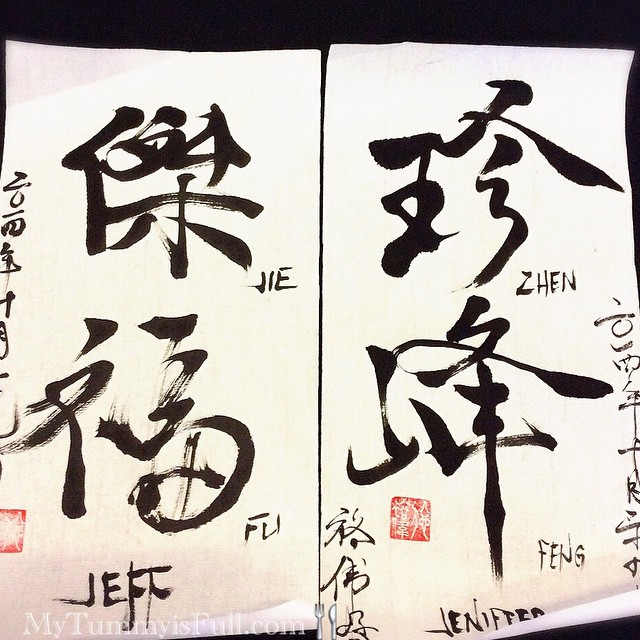 傑
JIE
福
FU
JEFF
二〇一四年十月
珍
ZHEN
峰
FENG
JENIFFER
二〇一四年十月
MyTummyisFull.com